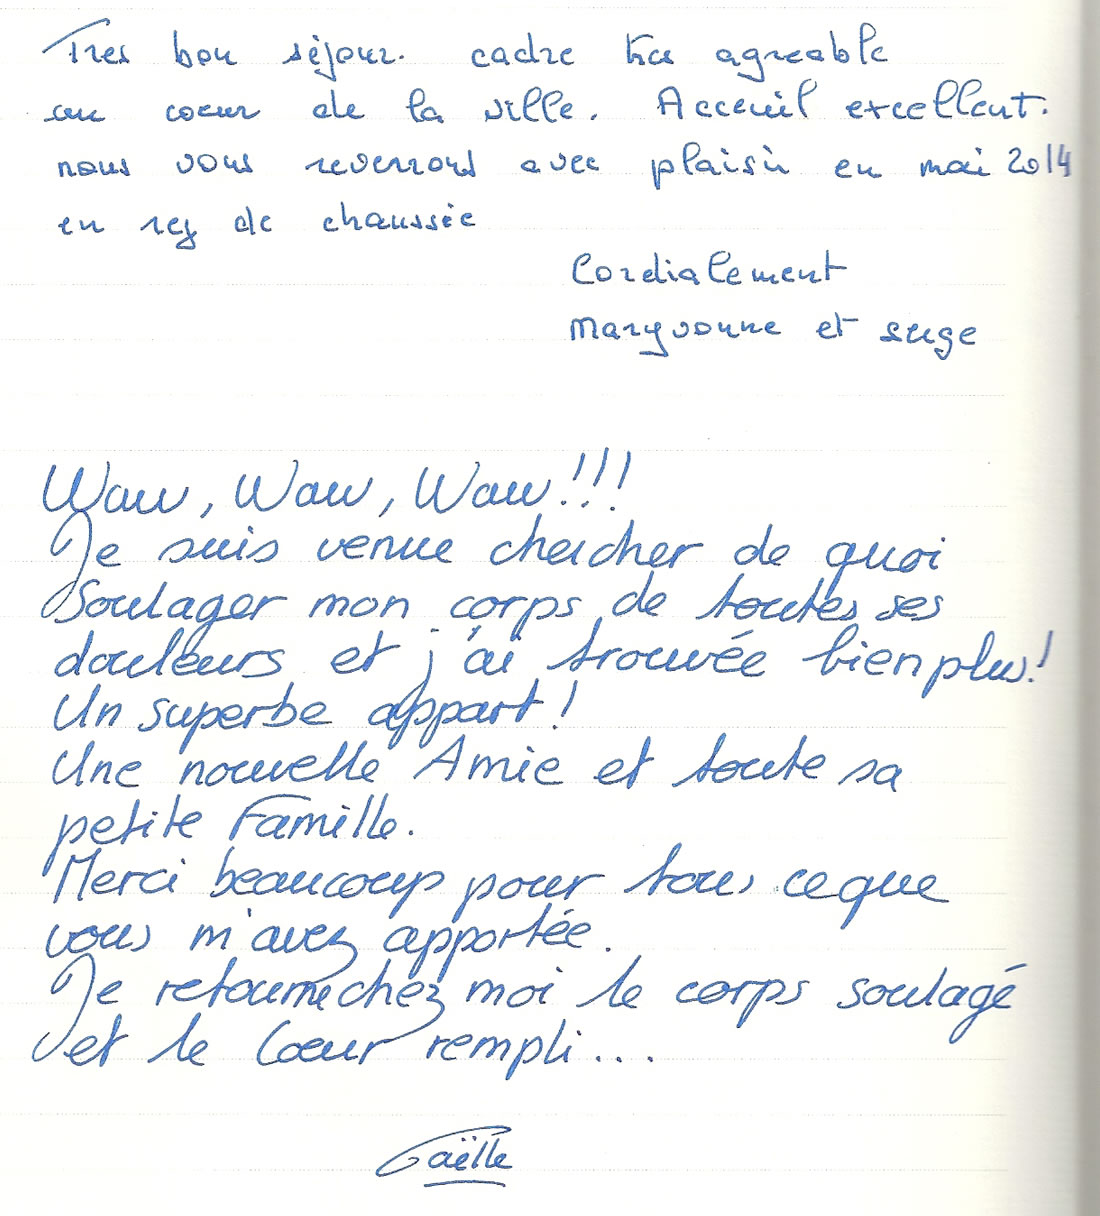 Tres bon séjour. cadre tres agreable
au coeur de la ville. Acceuil excellent.
nous vous reverrons avec plaisir en mai 2014
en rez de chaussée
Cordialement
Maryvonne et serge
Waw, Waw, Waw!!!
Je suis venue chercher de quoi
Soulager mon corps de toutes ses
douleurs et j'ai trouvée bien plus!
Un superbe appart!
Une nouvelle Amie et toute sa
petite Famille.
Merci beaucoup pour tous ce que
vous m'avez apportée.
Je retourne chez moi le corps soulagé
et le Coeur rempli...
Gaëlle